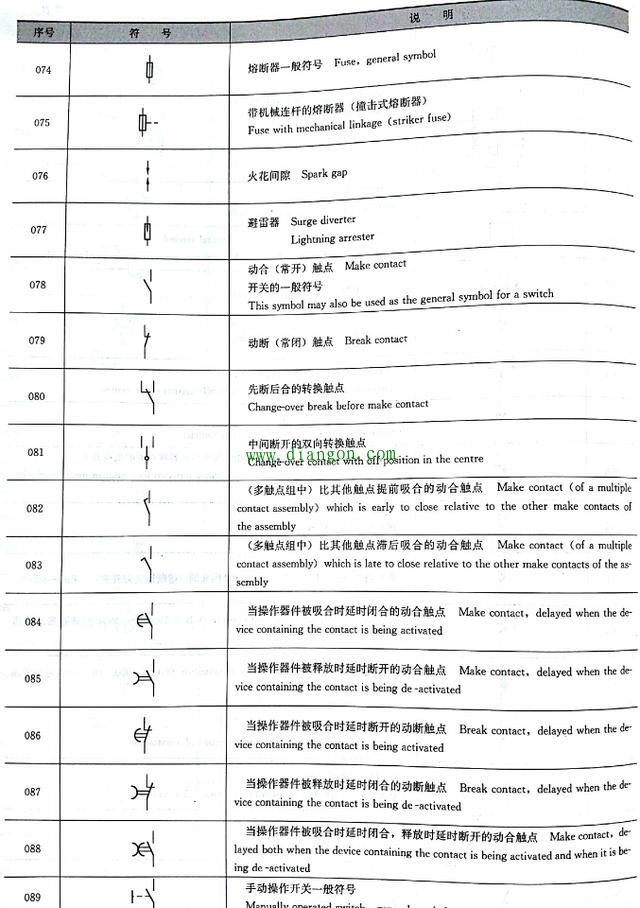 序号 符 号 说 明
074 熔断器一般符号 Fuse, general symbol
075 带机械连杆的熔断器（撞击式熔断器）
Fuse with mechanical linkage (striker fuse)
076 火花间隙 Spark gap
077 避雷器 Surge diverter
Lightning arrester
078 动合（常开）触点 Make contact
开关的一般符号
This symbol may also be used as the general symbol for a switch
079 动断（常闭）触点 Break contact
080 先断后合的转换触点
Change-over break before make contact
081 中间断开的双向转换触点
www.diangon.com
Change-over contact with off position in the centre
082 （多触点组中）比其他触点提前吸合的动合触点 Make contact (of a multiple
contact assembly) which is early to close relative to the other make contacts of
the assembly
083 （多触点组中）比其他触点滞后吸合的动合触点 Make contact (of a multiple
contact assembly) which is late to close relative to the other make contacts of the as-
sembly
084 当操作器件被吸合时延时闭合的动合触点 Make contact, delayed when the de-
vice containing the contact is being activated
085 当操作器件被释放时延时断开的动合触点 Make contact, delayed when the de-
vice containing the contact is being de-activated
086 当操作器件被吸合时延时断开的动断触点 Break contact, delayed when the de-
vice containing the contact is being activated
087 当操作器件被释放时延时闭合的动断触点 Break contact, delayed when the de-
vice containing the contact is being de-activated
088 当操作器件被吸合时延时闭合，释放时延时断开的动合触点 Make contact, de-
layed both when the device containing the contact is being activated and when it is be-
ing de-activated
089 手动操作开关一般符号
Manually operated switch